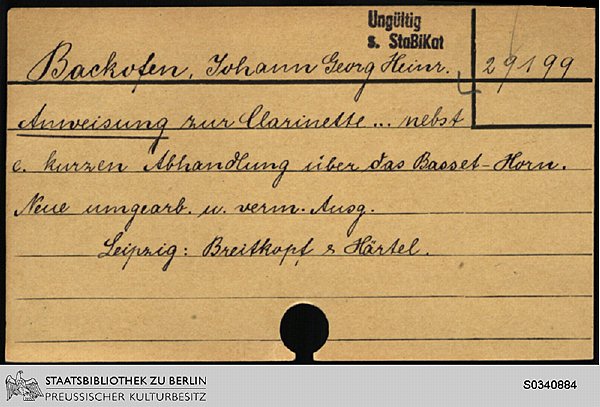 Ungültig
s. StaBiKat
Backofen, Johann Georg Heinr.
29199
Anweisung zur Clarinette ... nebst
e. kurzen Abhandlung über das Basset-Horn.
Neue umgearb. u. verm. Ausg.
Leipzig: Breitkopf & Härtel.
STAATSBIBLIOTHEK ZU BERLIN
PREUSSISCHER KULTURBESITZ
S0340884